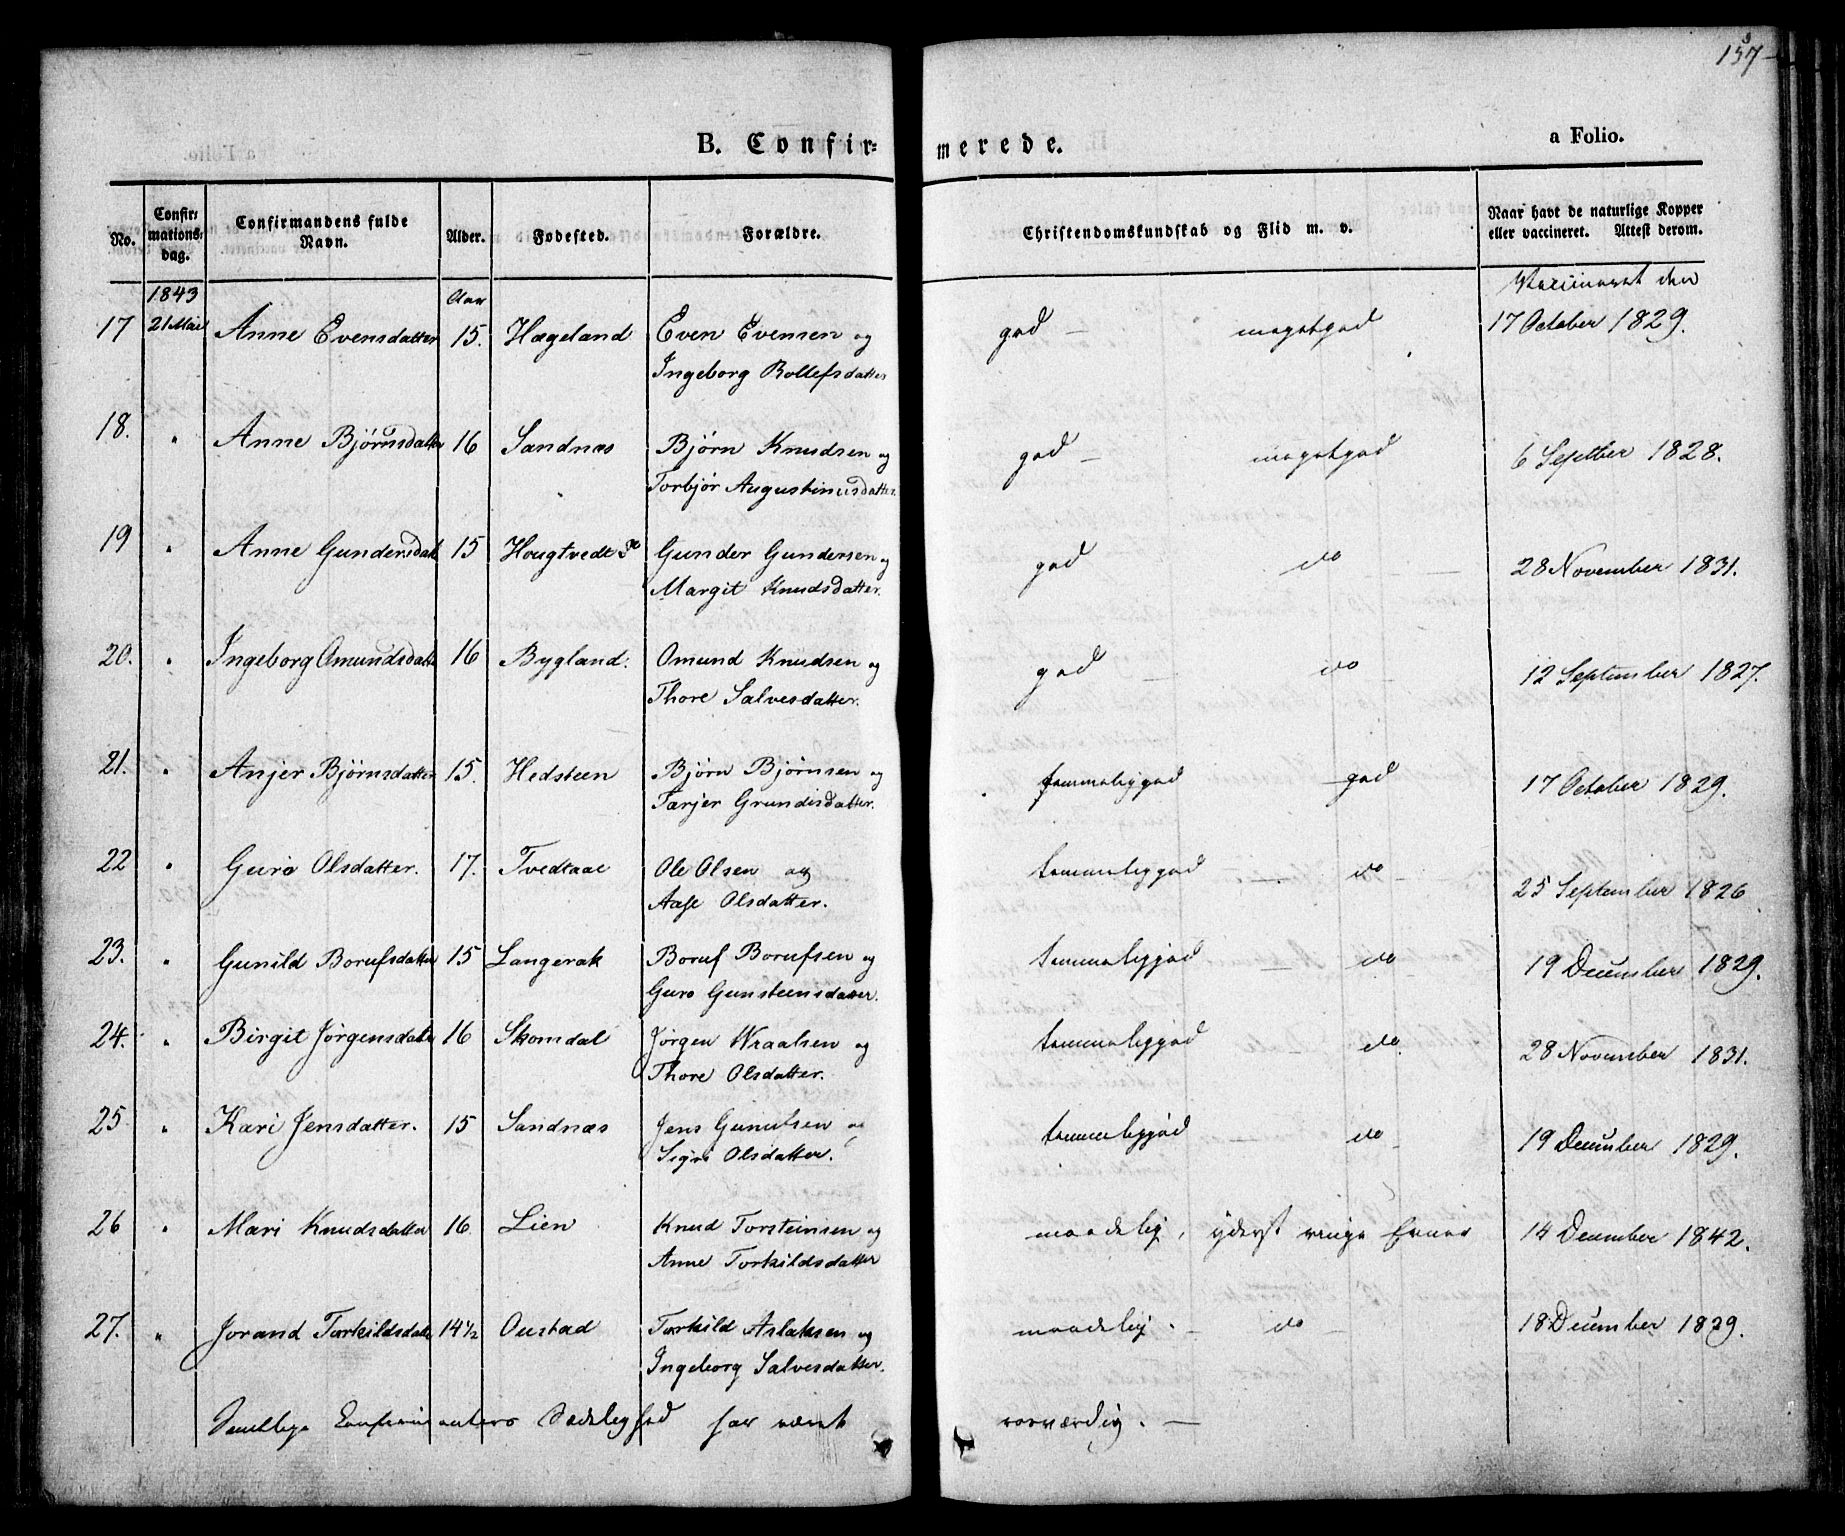 157
B. Confirmerede.
a Folio.
No.
Confirmationsdag.
Confirmandens fulde Navn.
Alder.
Fødested.
Forældre.
Christendomskundskab og Flid m. v.
Naar havt de naturlige Kopper eller vaccineret. Attest derom.
1843 Aar Vaccineret den
17 21 Mai Anne Evensdatter 15. Hægeland Even Evensen og god — megetgod 17 October 1829.
Ingeborg Rollefsdatter
18. " Anne Bjørnsdatter 16 Sandnæs Bjørn Knudsen og god — megetgod 6 Septber 1828.
Torbjør Augustinusdatter.
19 " Anne Gundersdatt 15 Hougtvedt Gunder Gundersen og god do 28 November 1831.
Margit Knudsdatter.
20. " Ingeborg Omundsdatt 16 Bygland. Omund Knudsen og god — do 12 September 1827.
Thore Salvesdatter.
21. " Anjer Bjørnsdatter 15. Hedsteen Bjørn Bjørnsen og temmeliggod — god 17 October 1829.
Tarjer Grundesdatter.
22 " Guro Olsdatter. 17. Tvedtaae Ole Olsen og temmeliggod — do 25 September 1826
Aase Olsdatter.
23. " Gunild Borufsdatter 15 Langerak Boruf Borufsen og temmeliggod — do 19 December 1829.
Guro Gunsteensdatter.
24. " Birgit Jørgensdatter 16 Skomdal Jørgen Wraalsen og temmeliggod do. 28 November 1831.
Thore Olsdatter.
25 " Kari Jensdatter. 15 Sandnæs Jens Gunulsen og temmeliggod — do 19 December 1829.
Signe Olsdatter.
26 " Mari Knudsdatter 16. Lien Knud Torsteinsen og maadelig, yderst ringe Evner 14 December 1842.
Anne Torkildsdatter
27. " Jorand Tarkildsdatt 14½ Oustad Tarkild Aslaksen og maadelig. — do 18 December 1829.
Ingeborg Salvesdatter.
Samtlige Confirmanters Sædelighed har været roesværdig. —